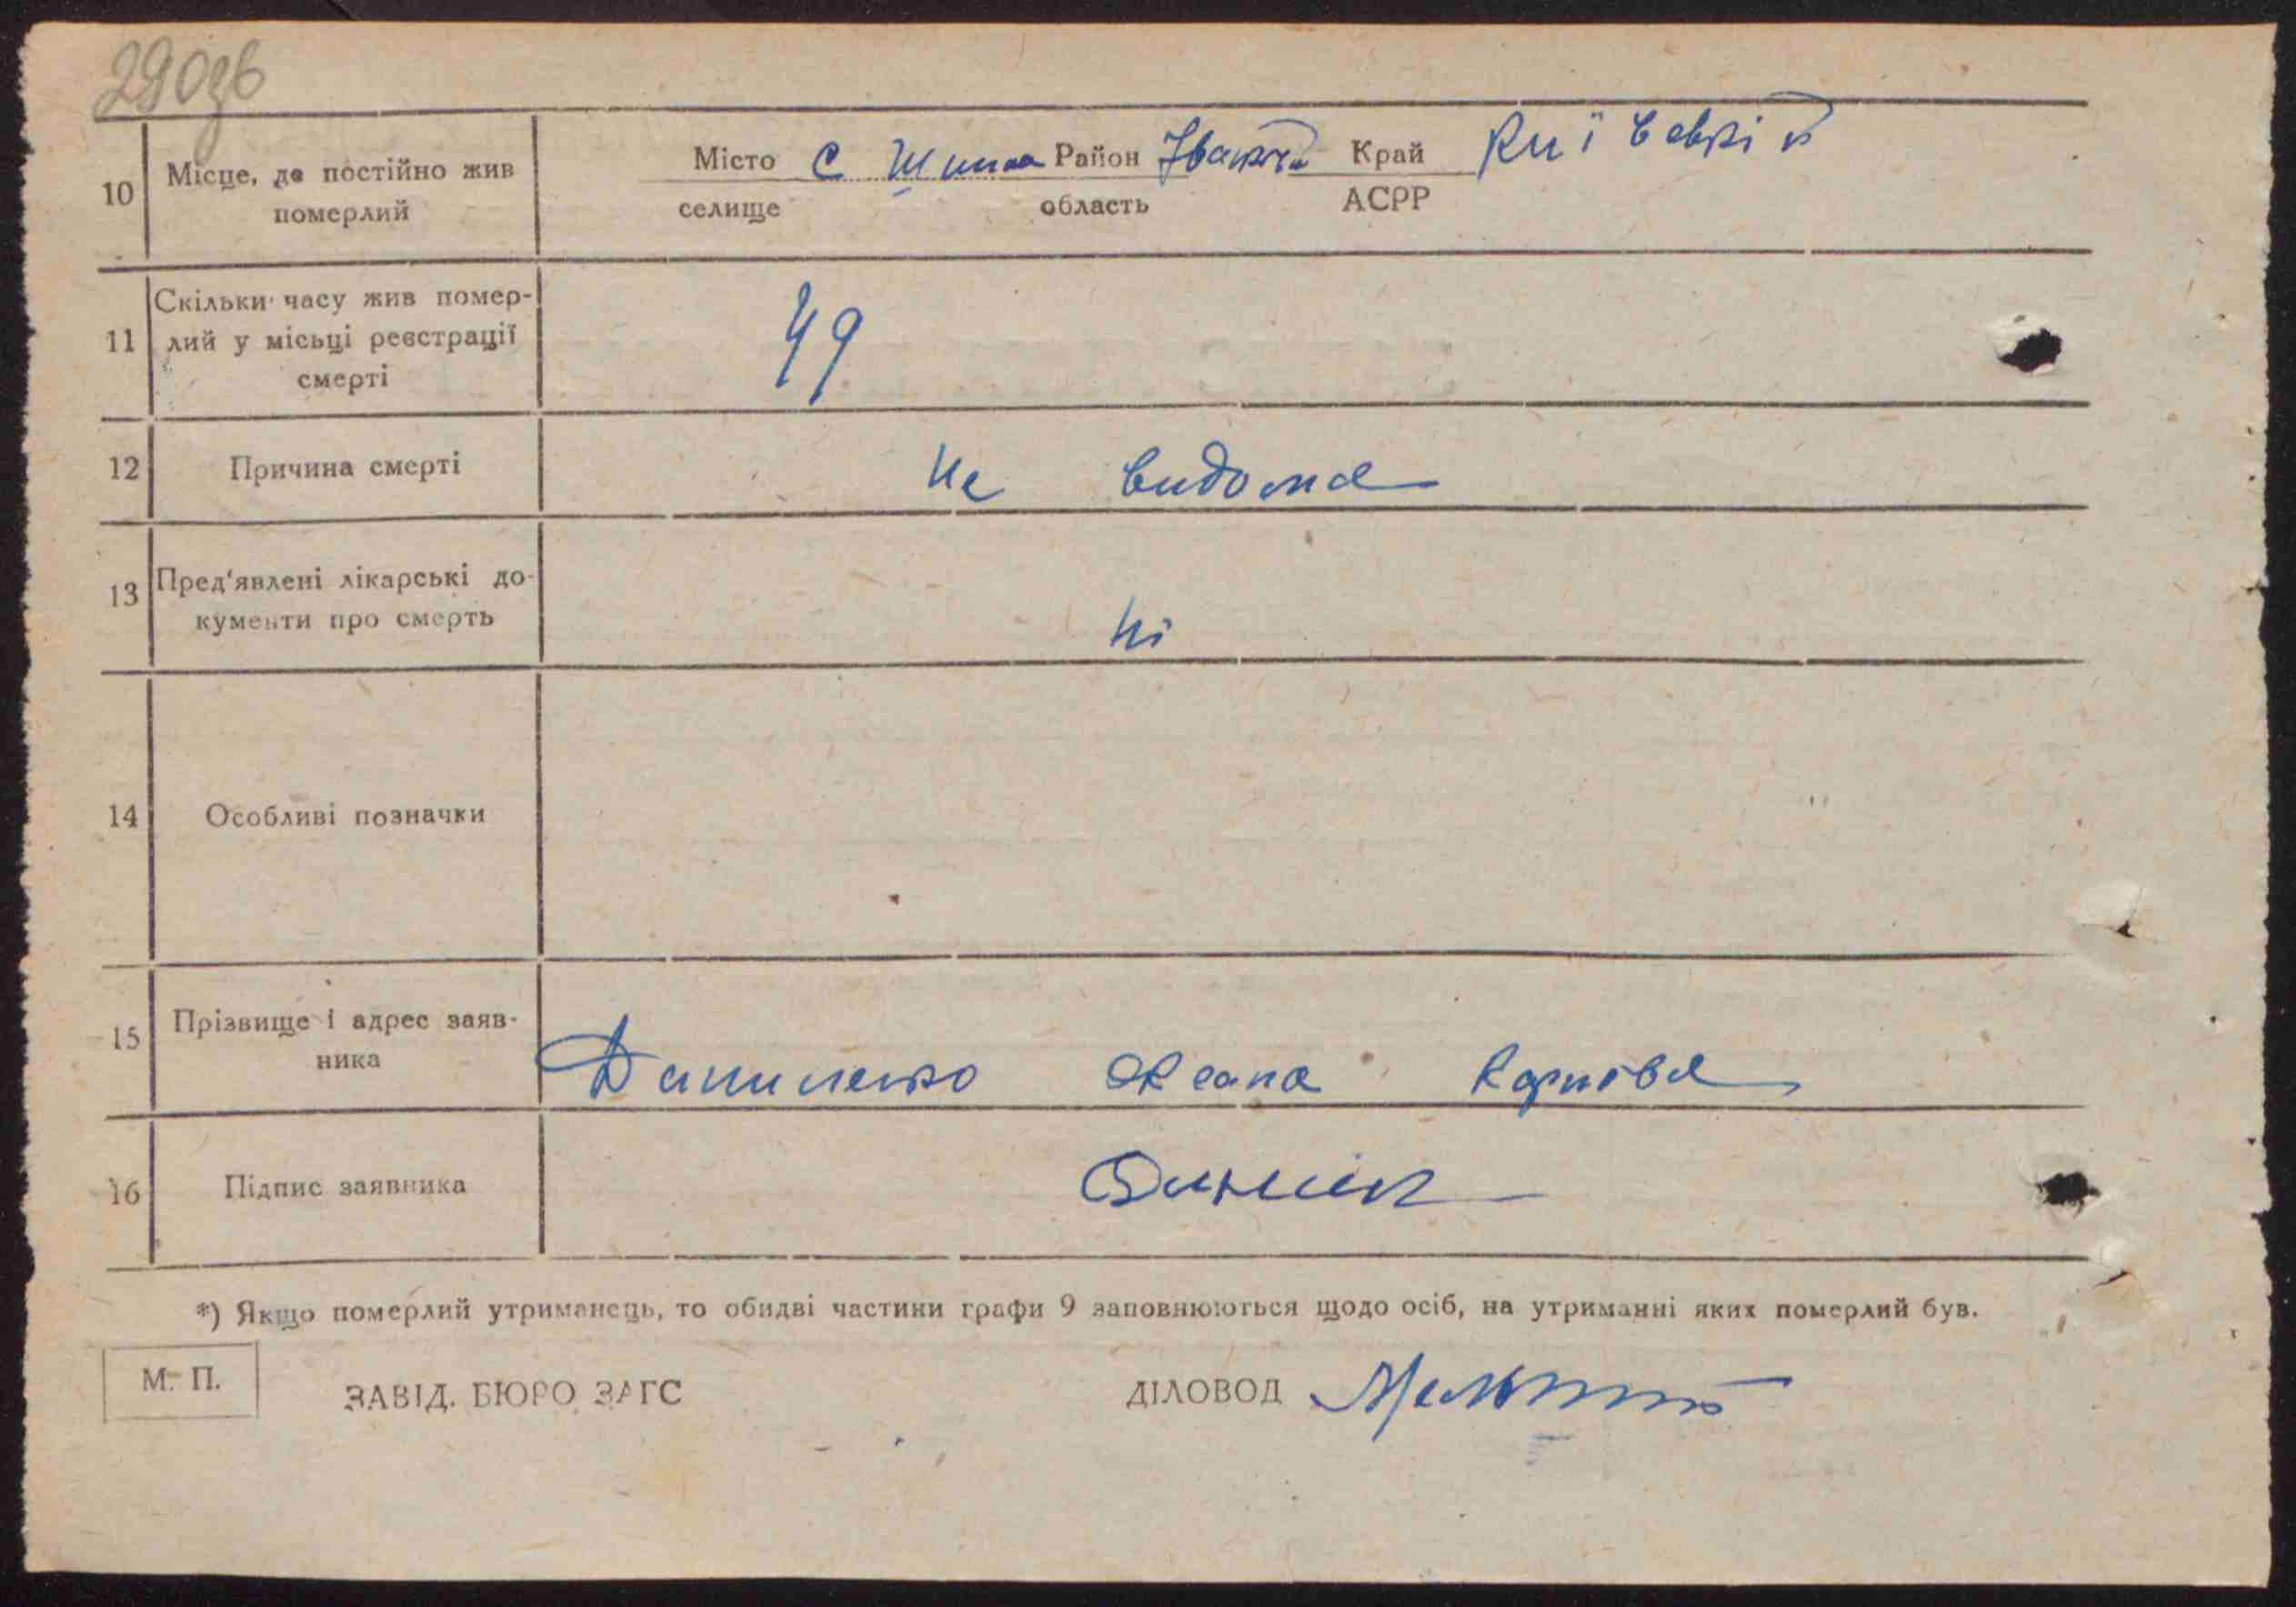 290зв
10 Місце, де постійно жив Місто С Район Край Київській
померлий селище область АСРР
11 Скільки часу жив помер-
лий у місьці реєстрації 49
смерті
12 Причина смерті Не видома
13 Пред'явлені лікарські до-
кументи про смерть Ні
14 Особливі позначки
15 Прізвище і адрес заяв-
ника Даниленко Оксана Карпова
16 Підпис заявника
*) Якщо померлий утриманець, то обидві частини графи 9 заповнюються щодо осіб, на утриманні яких померлий був.
М. П. ЗАВІД. БЮРО ЗАГС ДІЛОВОД